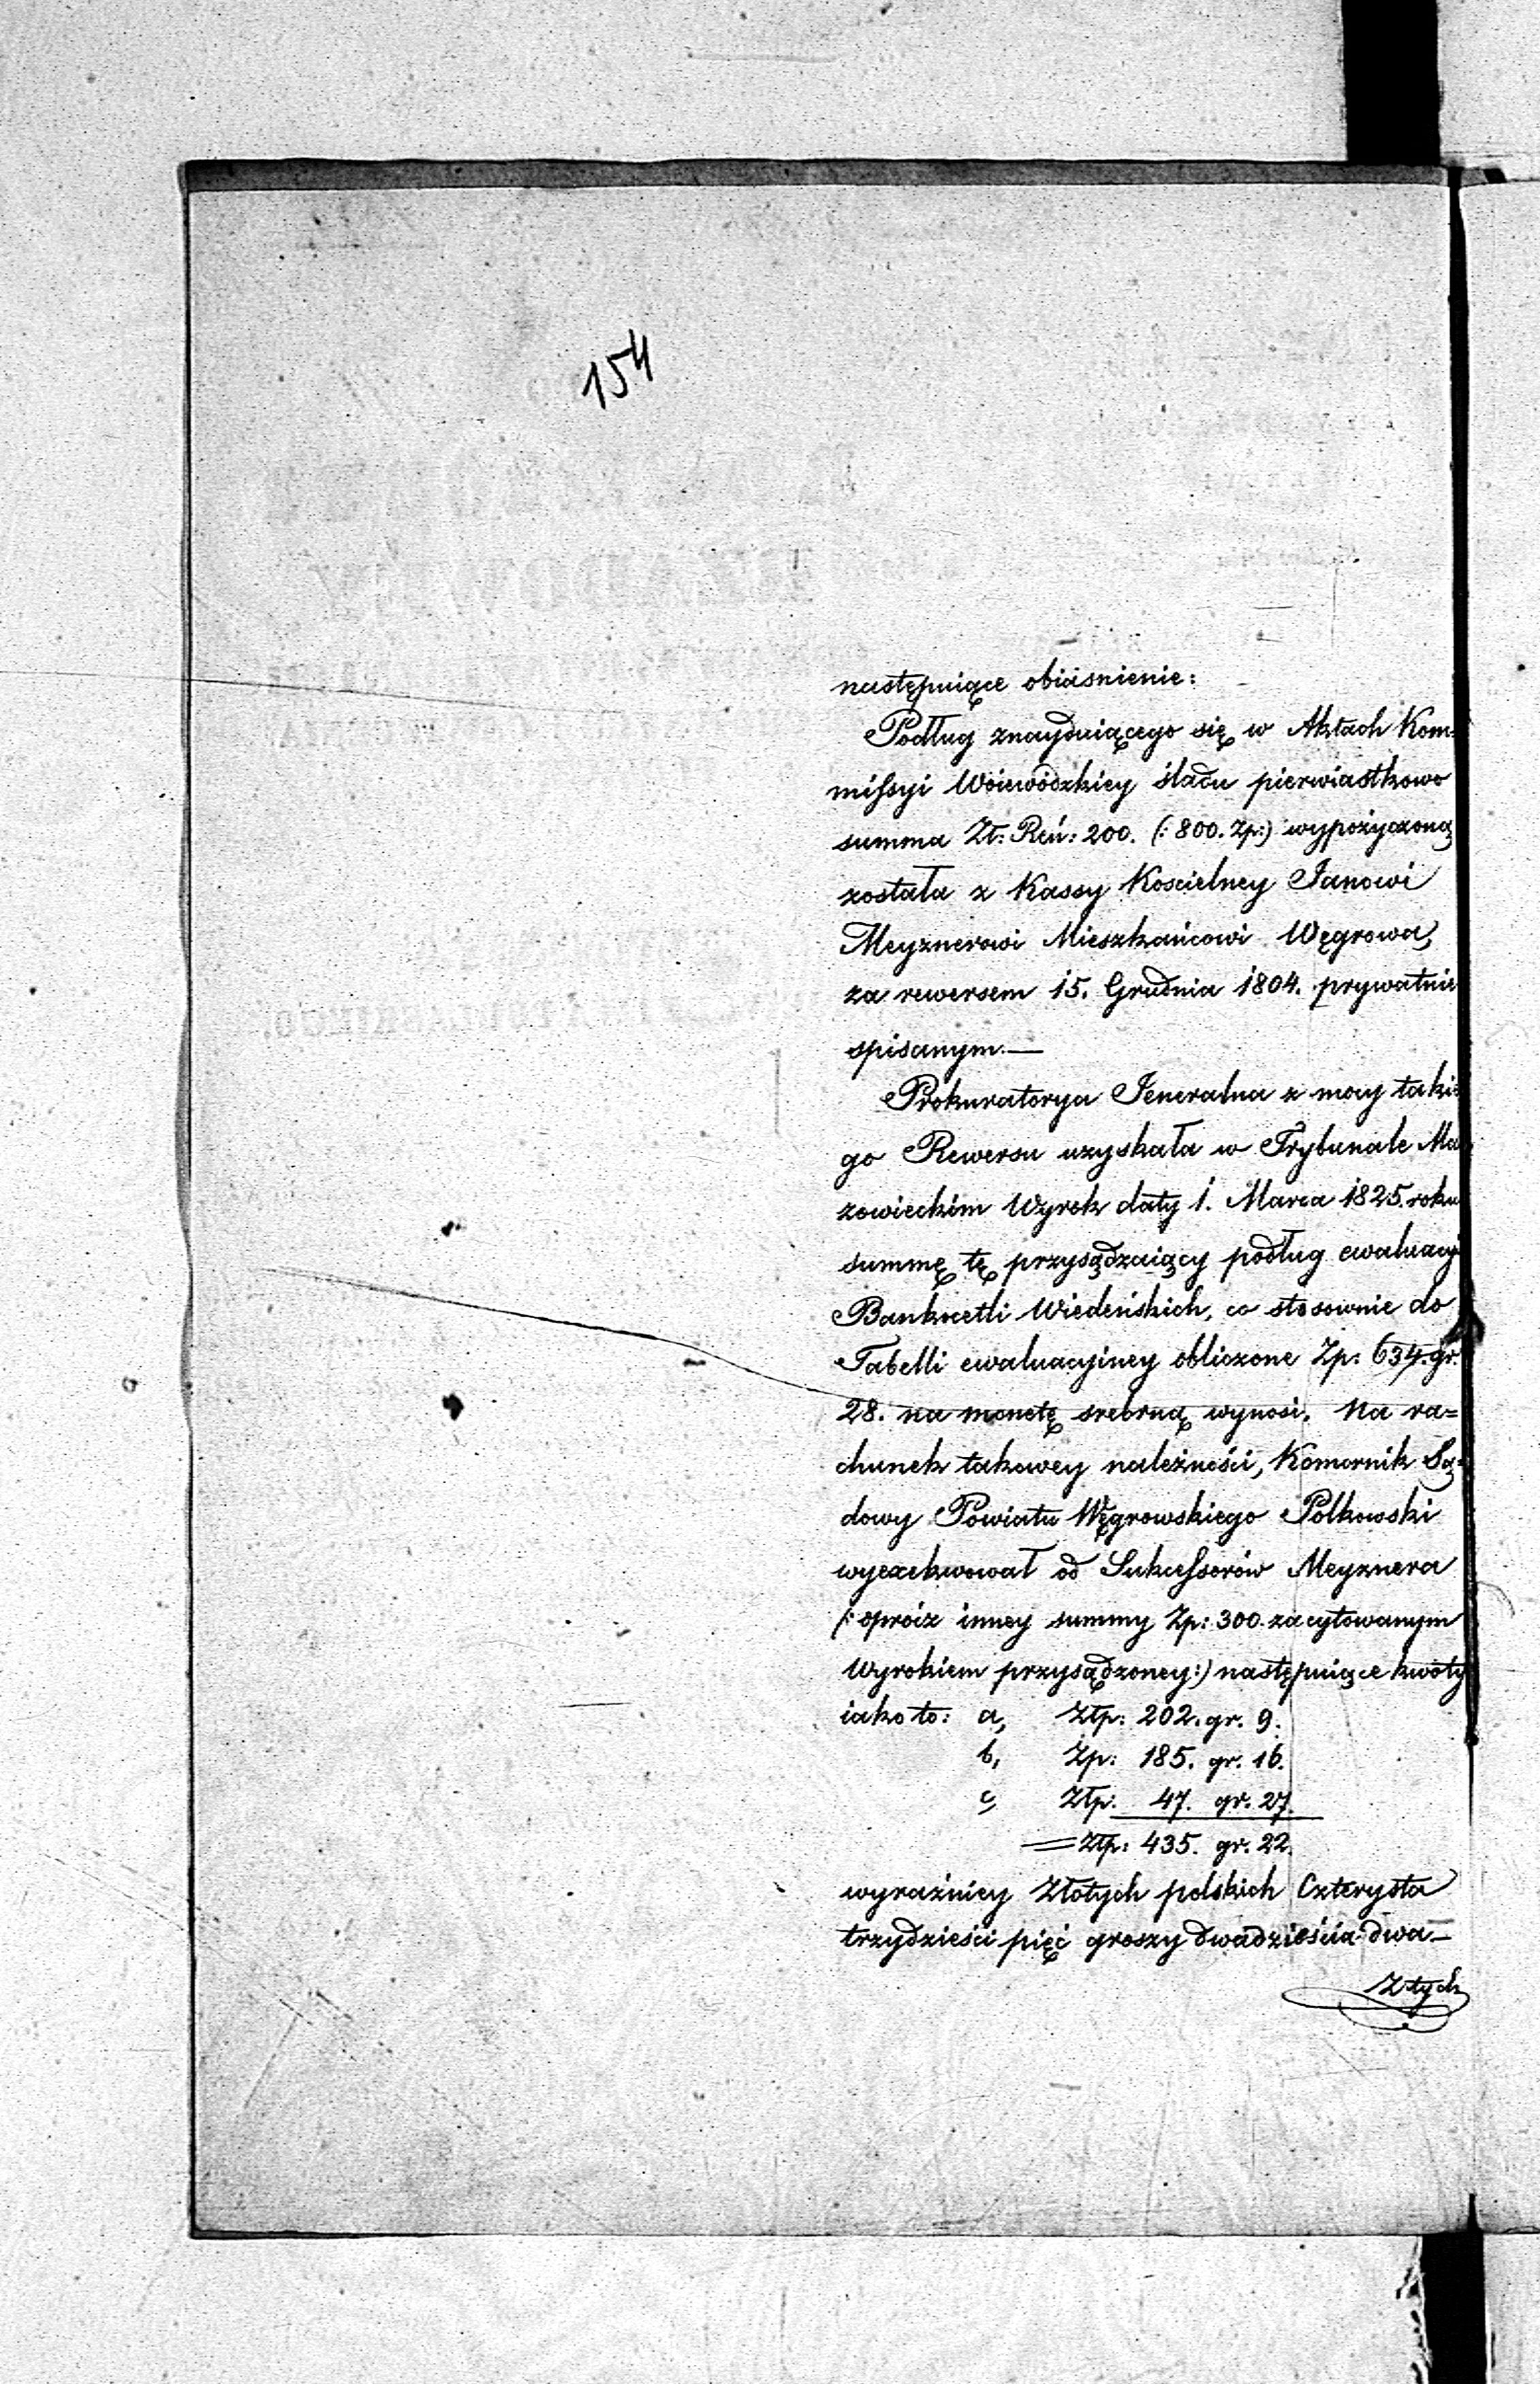 154
następuiące obiaśnienie:
Podług znayduiącego się w Aktach Kom-
missyi Woiewódzkiey śladu pierwiastkowo
summa Zł: Reń: 200. (: 800. Zp:) wypożyczoną
została z Kassy Kościelney Janowi
Meyznerowi Mieszkańcowi Węgrowa,
za rewersem 15. Grudnia 1804. prywatnie
spisanym.—
Prokuratorya Jeneralna z mocy takie-
go Rewersu uzyskała w Trybunale Ma
zowieckim Wyrok daty 1. Marca 1825. roku
summę tę przysądzaiący podług ewaluacyi
Banknetli Wiedeńskich, co stosownie do
Tabelli ewaluacyiney obliczone Zp: 634. gr.
28. na monetę srebrną wynosi. Na ra=
chunek takowey należności, Komornik Są=
dowy Powiatu Węgrowskiego Polkowski
wyexekwował od Sukcessorów Meyznera
(: oprócz inney summy Zp: 300. zacytowanym
Wyrokiem przysądzoney:) następuiące kwoty
iako to: a, Złp: 202. gr. 9.
b, Zp: 185. gr. 16.
c, Złp: 47. gr. 27.
= Złp: 435. gr. 22.
wyraźniey Złotych polskich Czterysta
trzydzieści pięć groszy dwadzieścia dwa—
Z tych